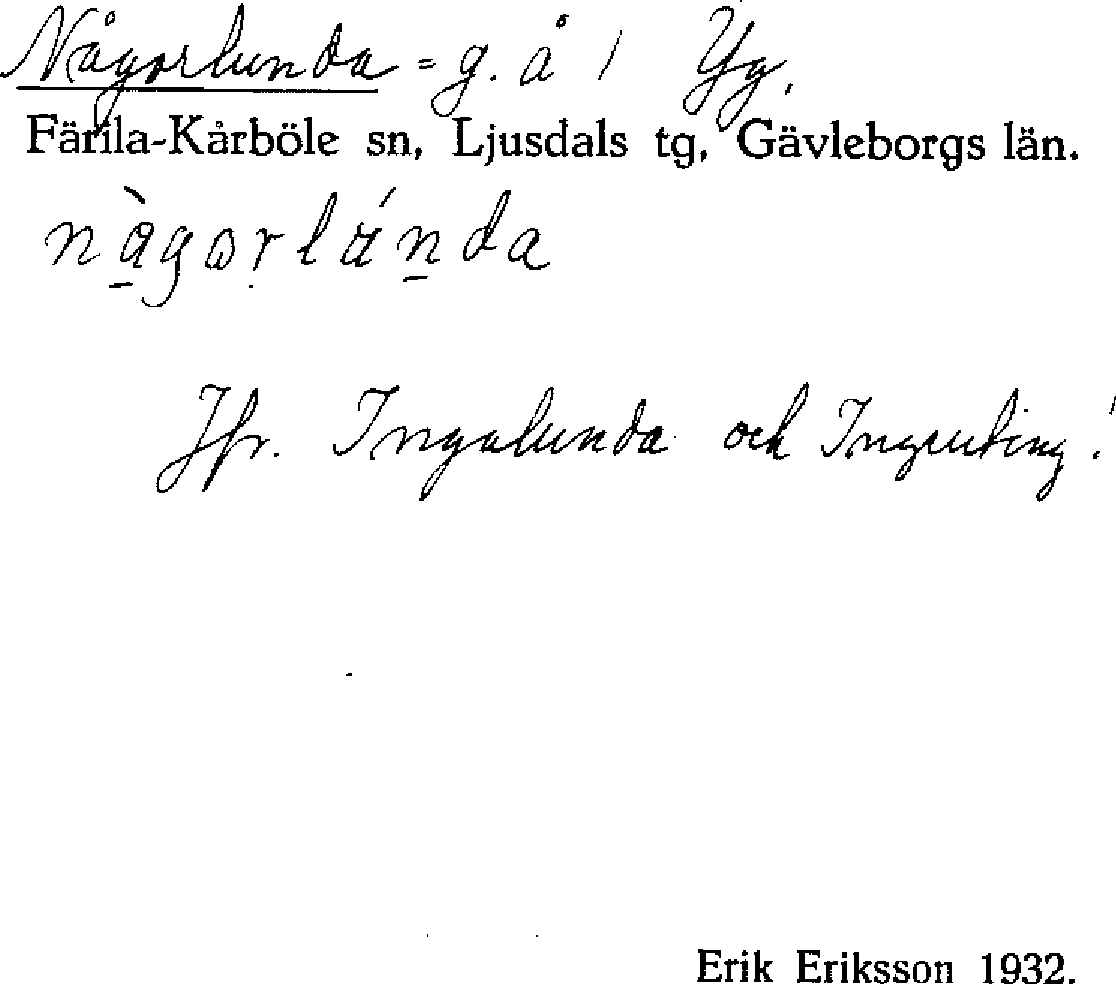 Någorlunda = g. å 1 Yg.
Färila-Kårböle sn, Ljusdals tg, Gävleborgs län.
någorlúnda
Jfr. Ingalunda och Ingenting!
Erik Eriksson 1932.